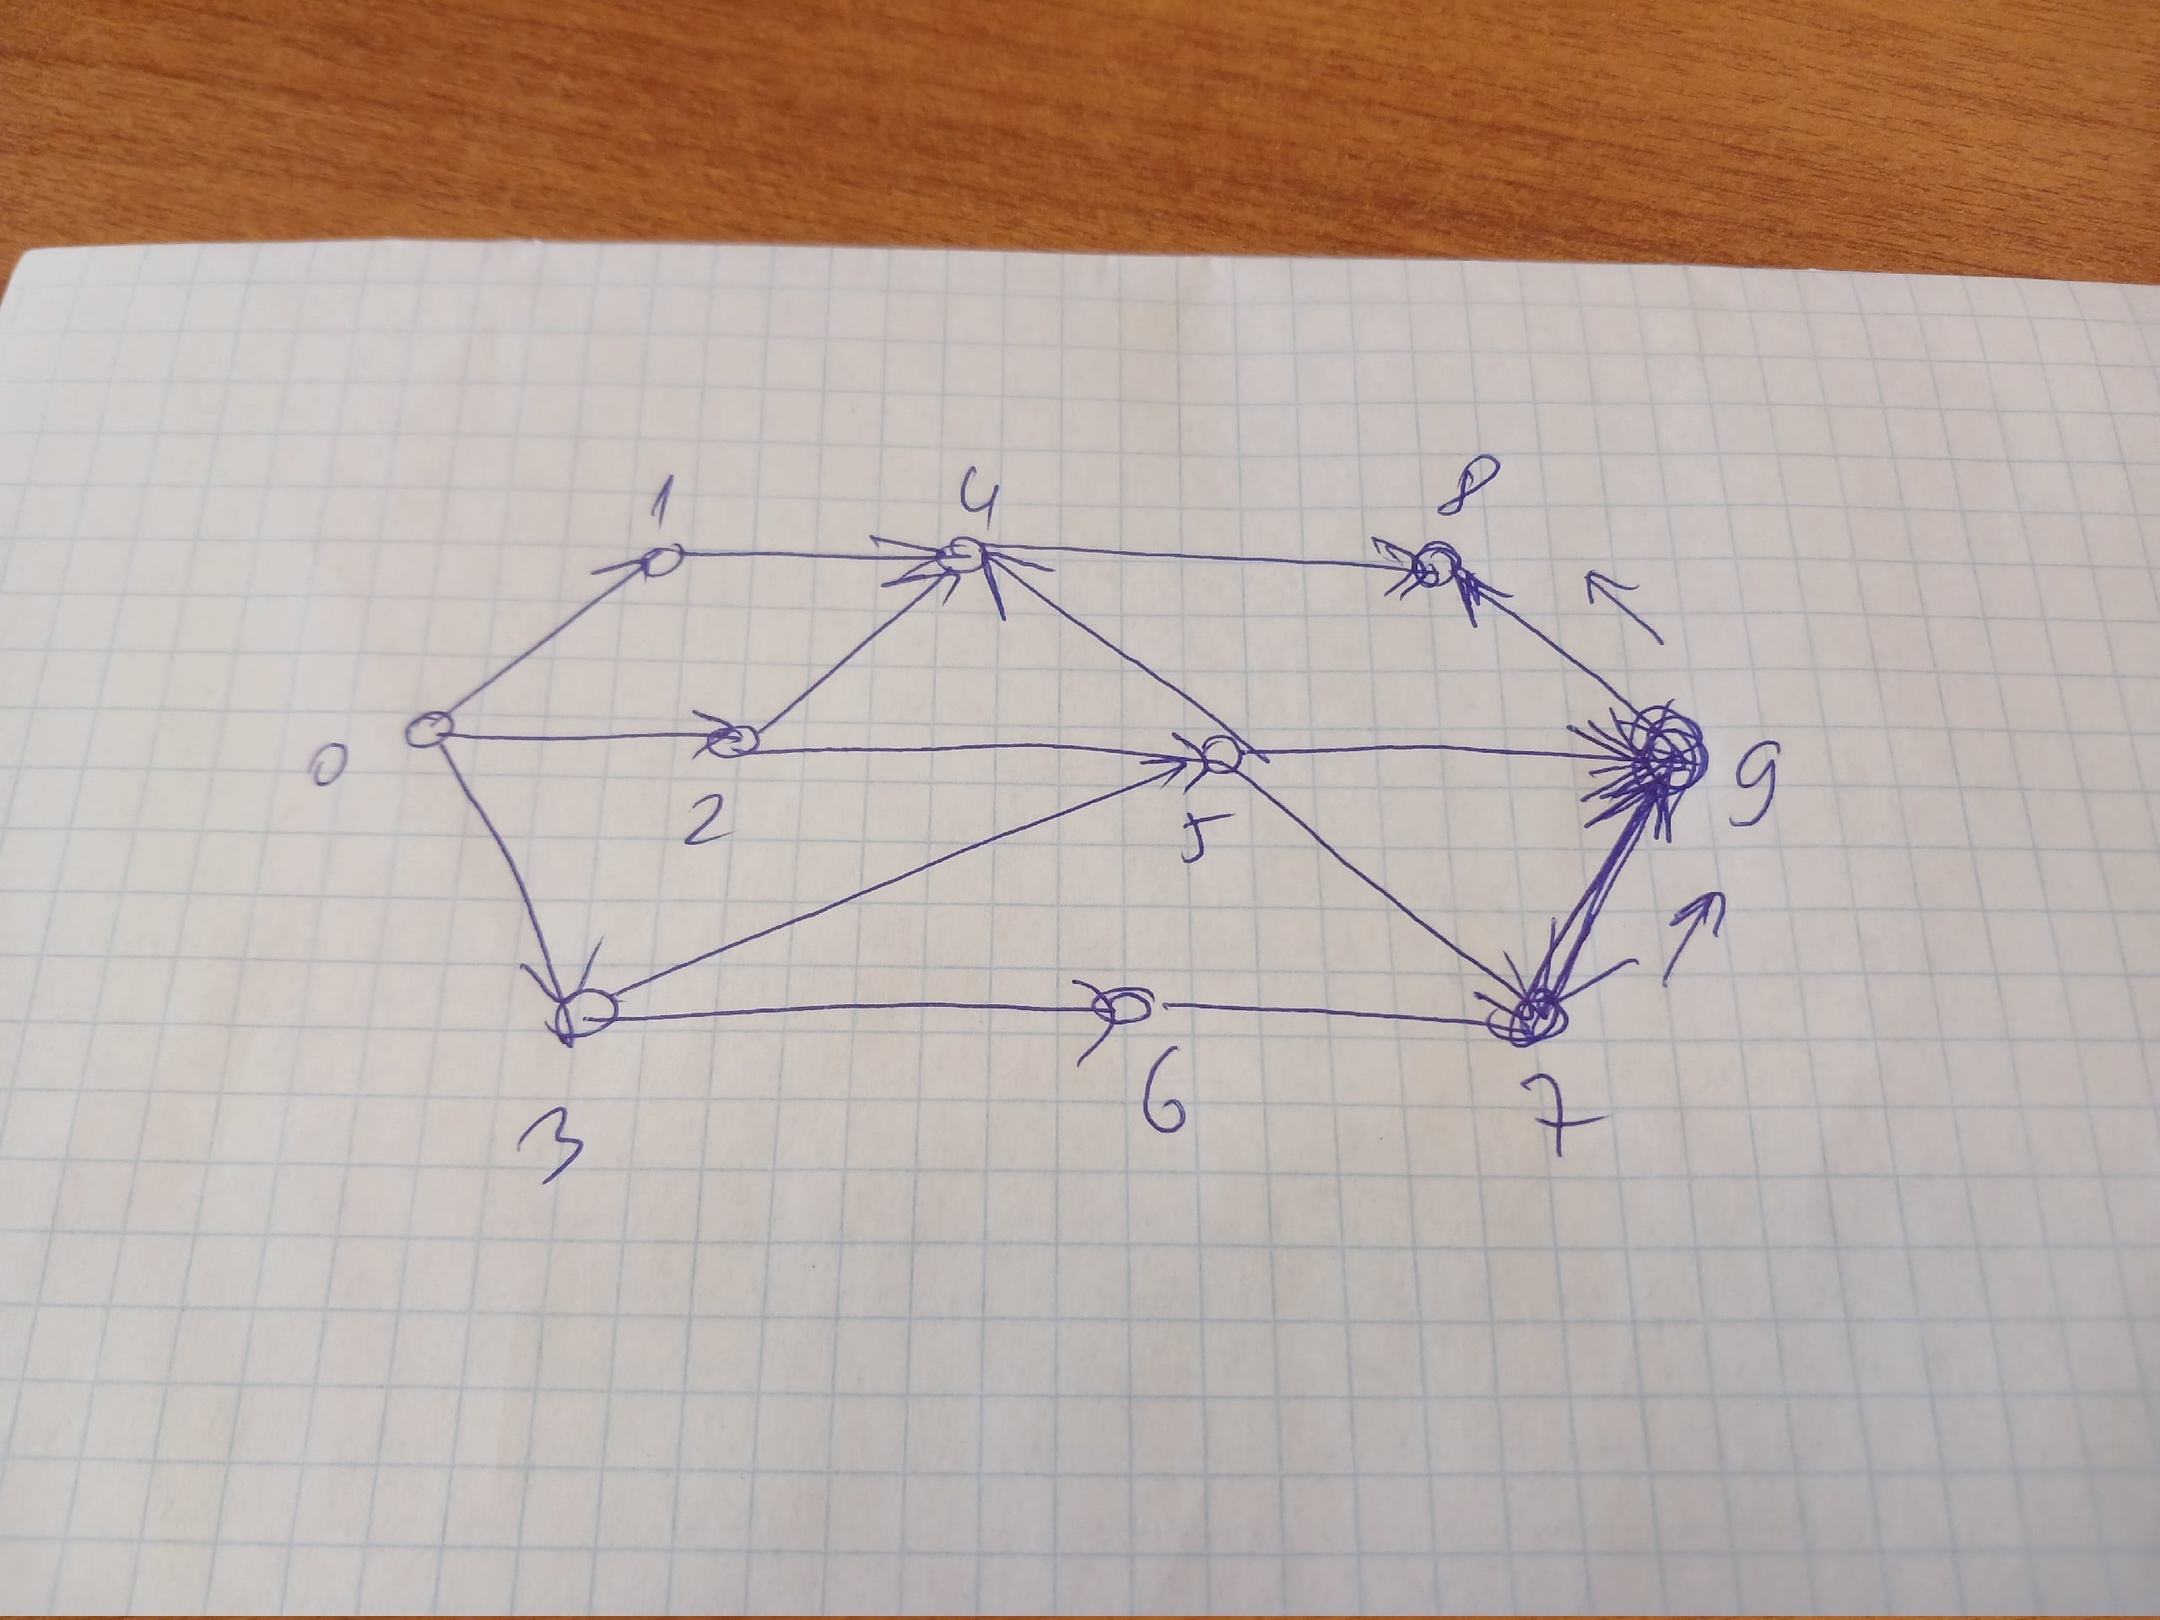 1 4 8
0 2 5 9
3 6 7